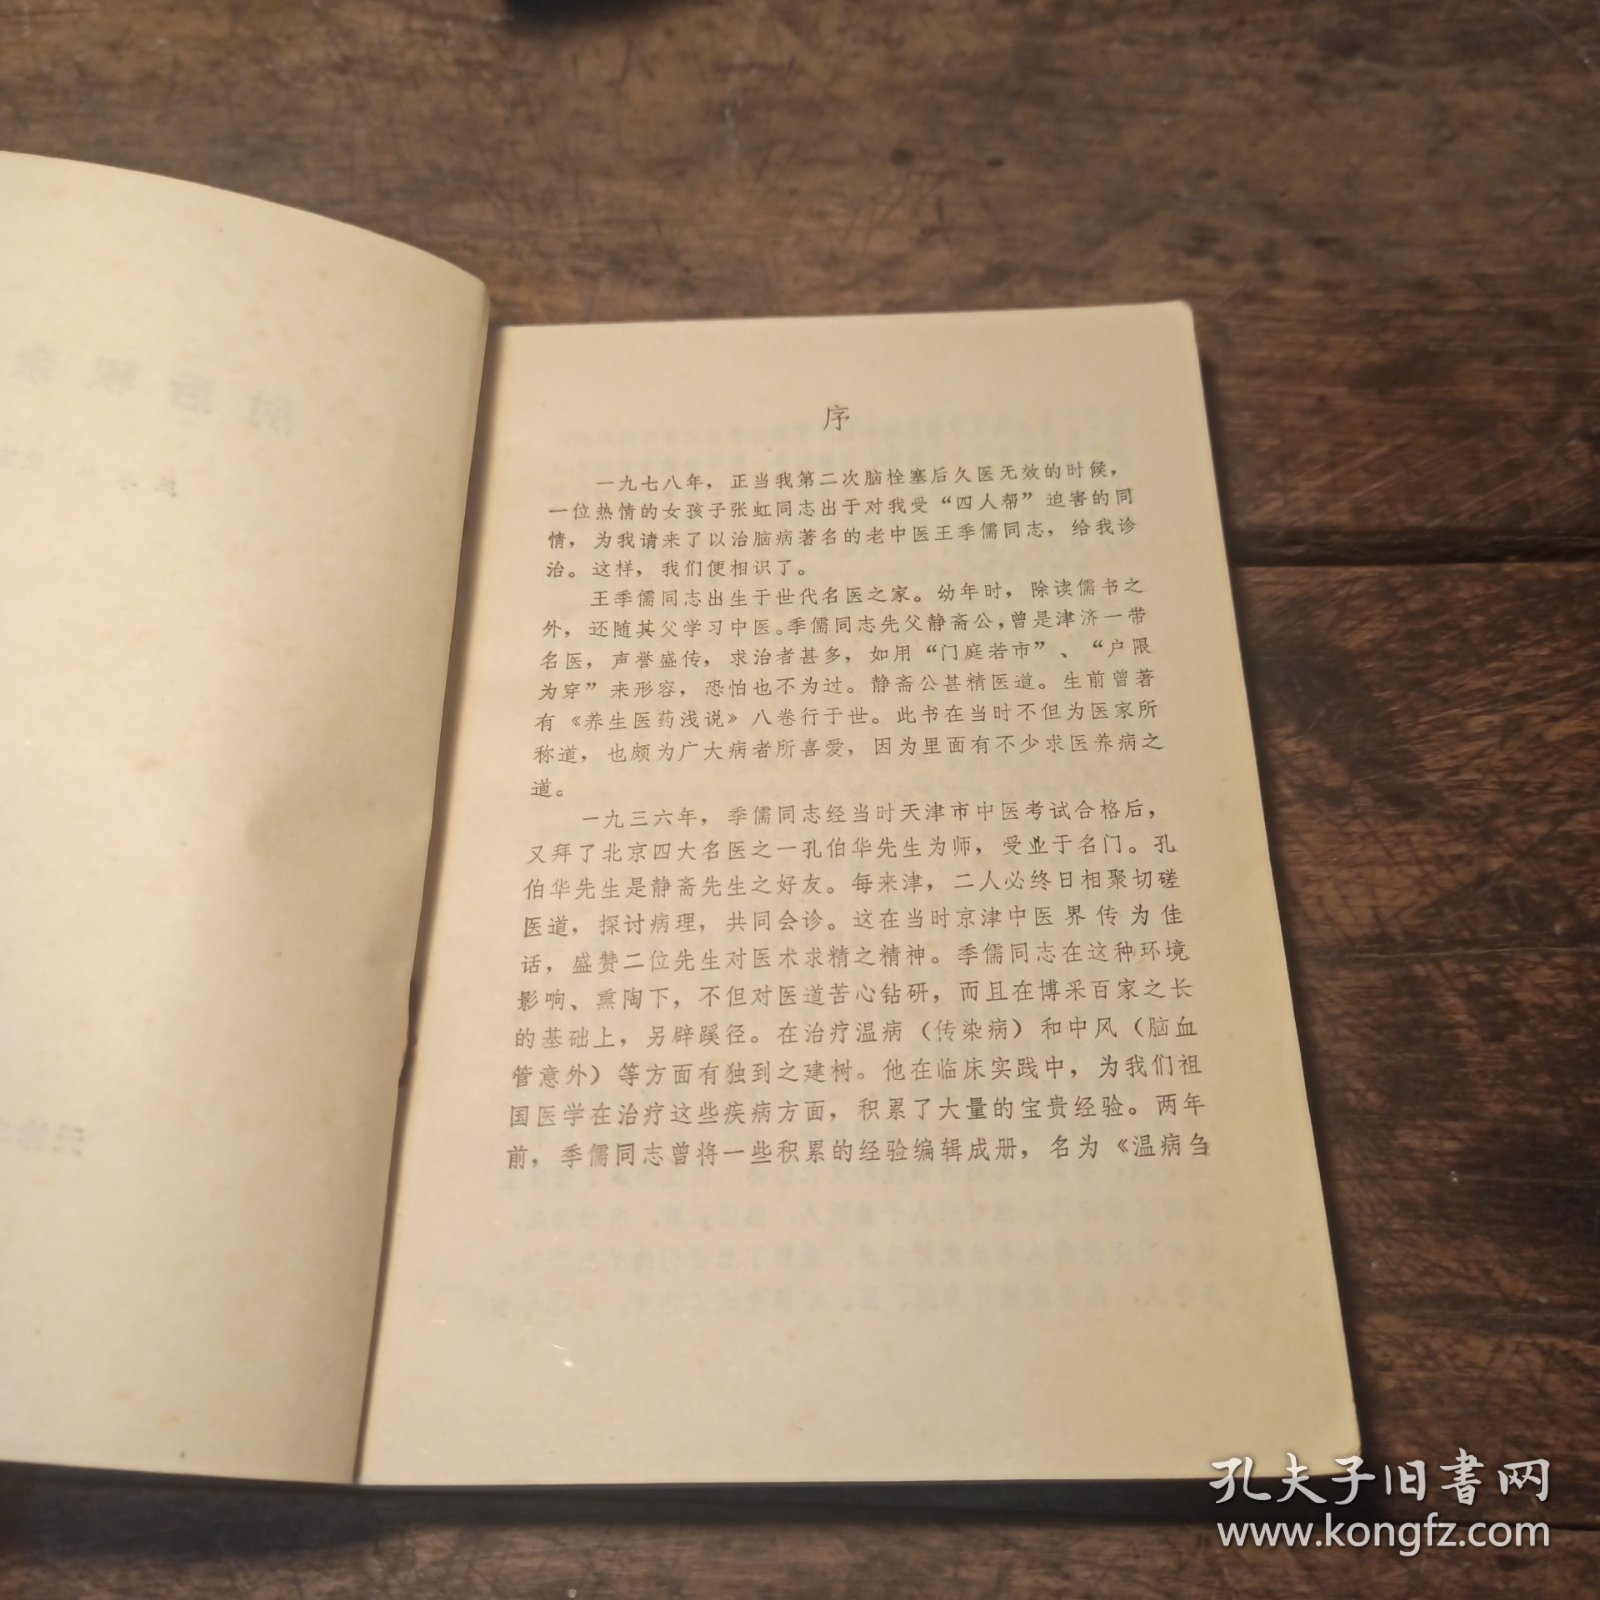 序
一九七八年，正当我第二次脑栓塞后久医无效的时候，
一位热情的女孩子张虹同志出于对我受“四人帮”迫害的同
情，为我请来了以治脑病著名的老中医王季儒同志，给我诊
治。这样，我们便相识了。
王季儒同志出生于世代名医之家。幼年时，除读儒书之
外，还随其父学习中医。季儒同志先父静斋公，曾是津济一带
名医，声誉盛传，求治者甚多，如用“门庭若市”、“户限
为穿”来形容，恐怕也不为过。静斋公甚精医道。生前曾著
有《养生医药浅说》八卷行于世。此书在当时不但为医家所
称道，也颇为广大病者所喜爱，因为里面有不少求医养病之
道。
一九三六年，季儒同志经当时天津市中医考试合格后，
又拜了北京四大名医之一孔伯华先生为师，受业于名门。孔
伯华先生是静斋先生之好友。每来津，二人必终日相聚切磋
医道，探讨病理，共同会诊。这在当时京津中医界传为佳
话，盛赞二位先生对医术求精之精神。季儒同志在这种环境
影响、熏陶下，不但对医道苦心钻研，而且在博采百家之长
的基础上，另辟蹊径。在治疗温病（传染病）和中风（脑血
管意外）等方面有独到之建树。他在临床实践中，为我们祖
国医学在治疗这些疾病方面，积累了大量的宝贵经验。两年
前，季儒同志曾将一些积累的经验编辑成册，名为《温病刍
孔夫子旧书网
www.kongfz.com